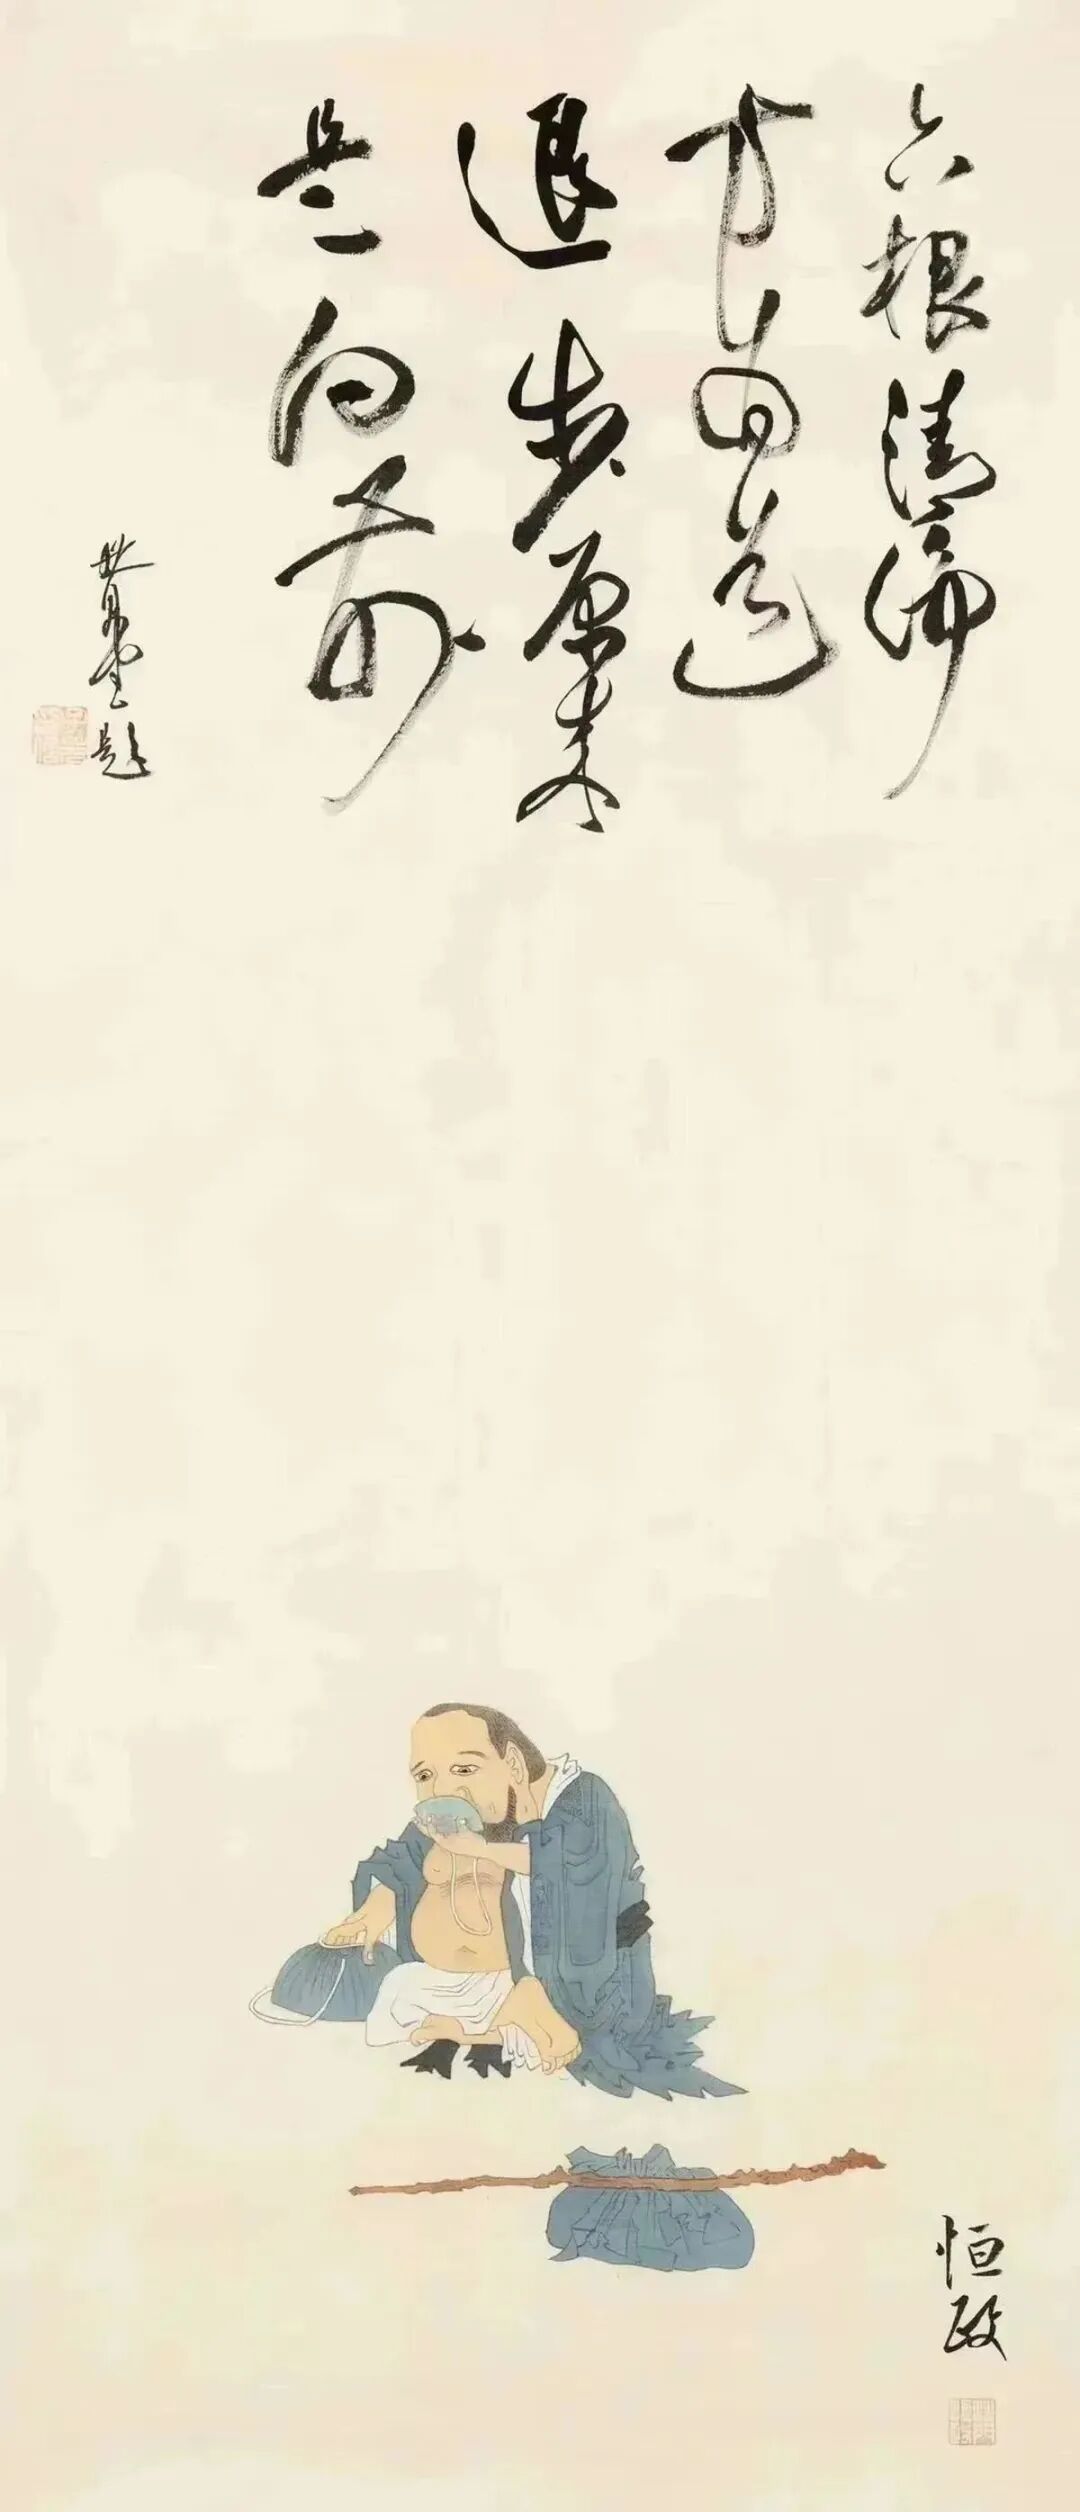 六根清净
方為道
退步原来
是向前
題
恒政